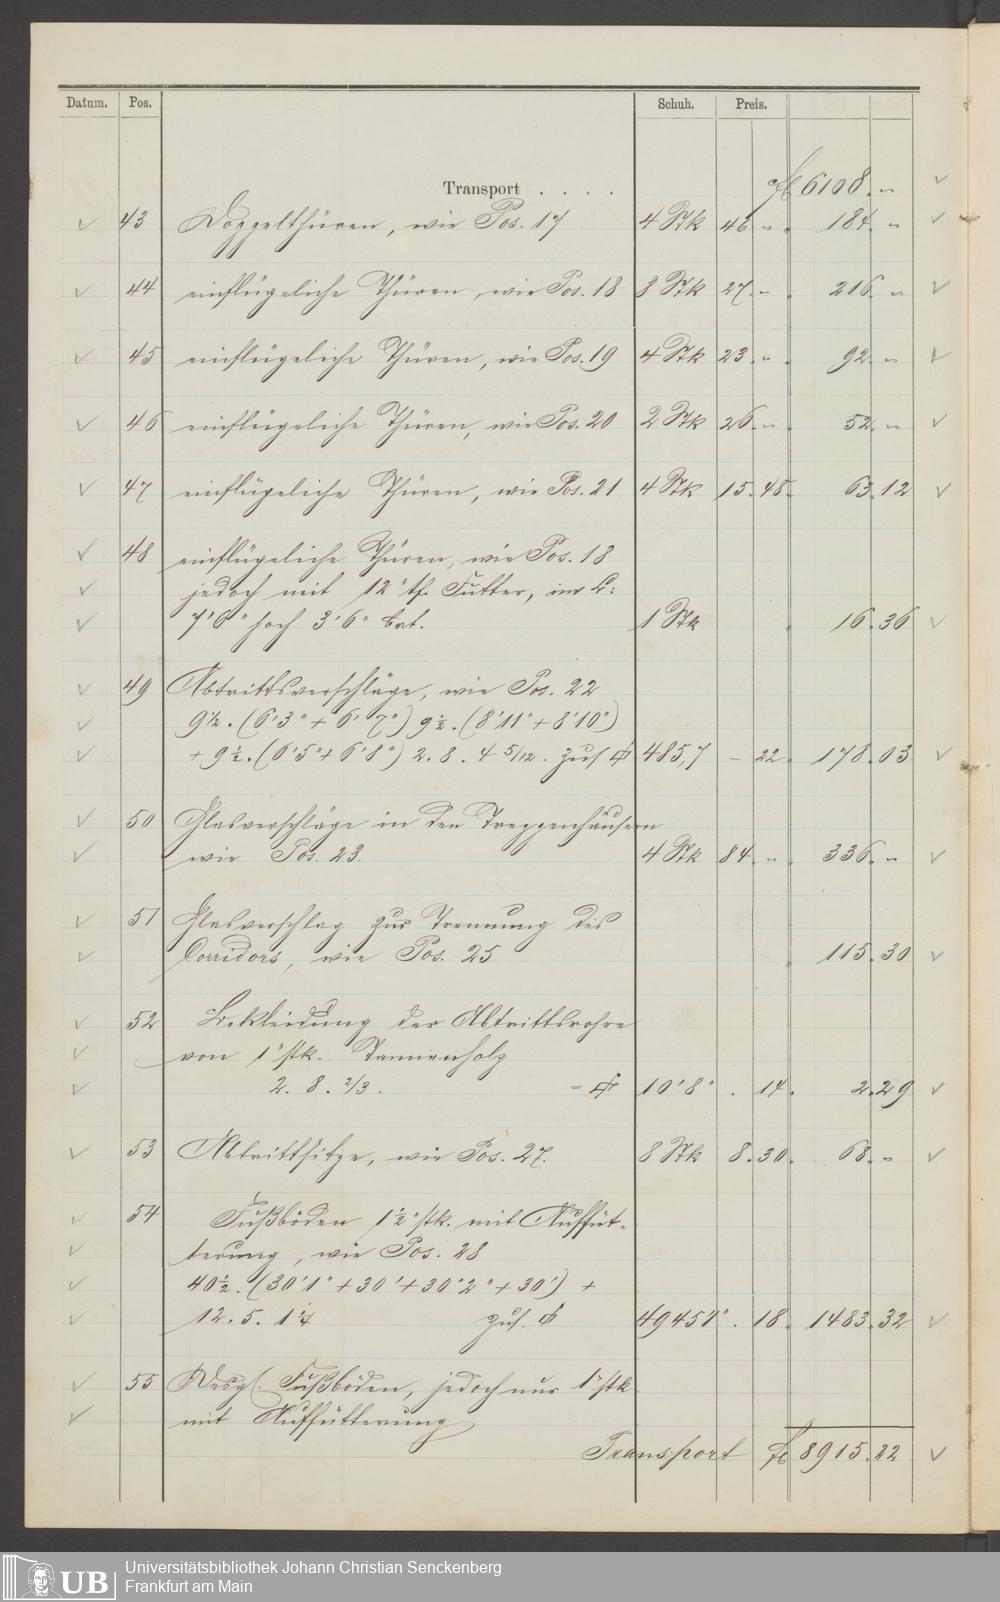 Datum. Pos. Schuh. Preis.
Transport . . . . fl 6108. "
43 Doppelthüren, wie Pos. 17 4 Stk 46. " 184. "
44 einflügeliche Thüren, wie Pos. 18 8 Stk 27. " 216. "
45 einflügeliche Thüren, wie Pos. 19 4 Stk 23. " 92. "
46 einflügeliche Thüren, wie Pos. 20 2 Stk 26. " 52. "
47 einflügeliche Thüren, wie Pos. 21 4 Stk 15. 48. 63. 12
48 einflügeliche Thüren, wie Pos. 18
jedoch mit 12" tf. Futter, im L:
7'0" hoch 3'6" brt. 1 Stk 16. 36
49 Abtrittsverschläge, wie Pos. 22
9½. (6'3" + 6'7") 9½. (8'11" + 8'10")
+ 9½. (6'5" + 6'8") 2. 8. 4 5/12. zus. 485,7 – 22. 178. 03
50 Glasverschläge in den Treppenhäusern
wie Pos. 23. 4 Stk 84. " 336. "
51 Glasverschlag zur Trennung des
Corridors, wie Pos. 25 115. 30
52 Bekleidung der Abtrittsrohre
von 1" stk. Tannenholz
2. 8. 2/3. = 10'8" . 14. 2. 29
53 Abtrittsitze, wie Pos. 27. 8 Stk 8. 30. 68. "
54 Fußböden 1½" stk. mit Auffüt-
terung, wie Pos. 28
40½. (30'1" + 30' + 30'2" + 30') +
12. 5. 1¼ zus. 4945'1" . 18. 1483. 32
55 Desgl. Fußböden, jedoch nur 1" stk
mit Auffütterung
Transport fl 8915. 22
UB Universitätsbibliothek Johann Christian Senckenberg
Frankfurt am Main